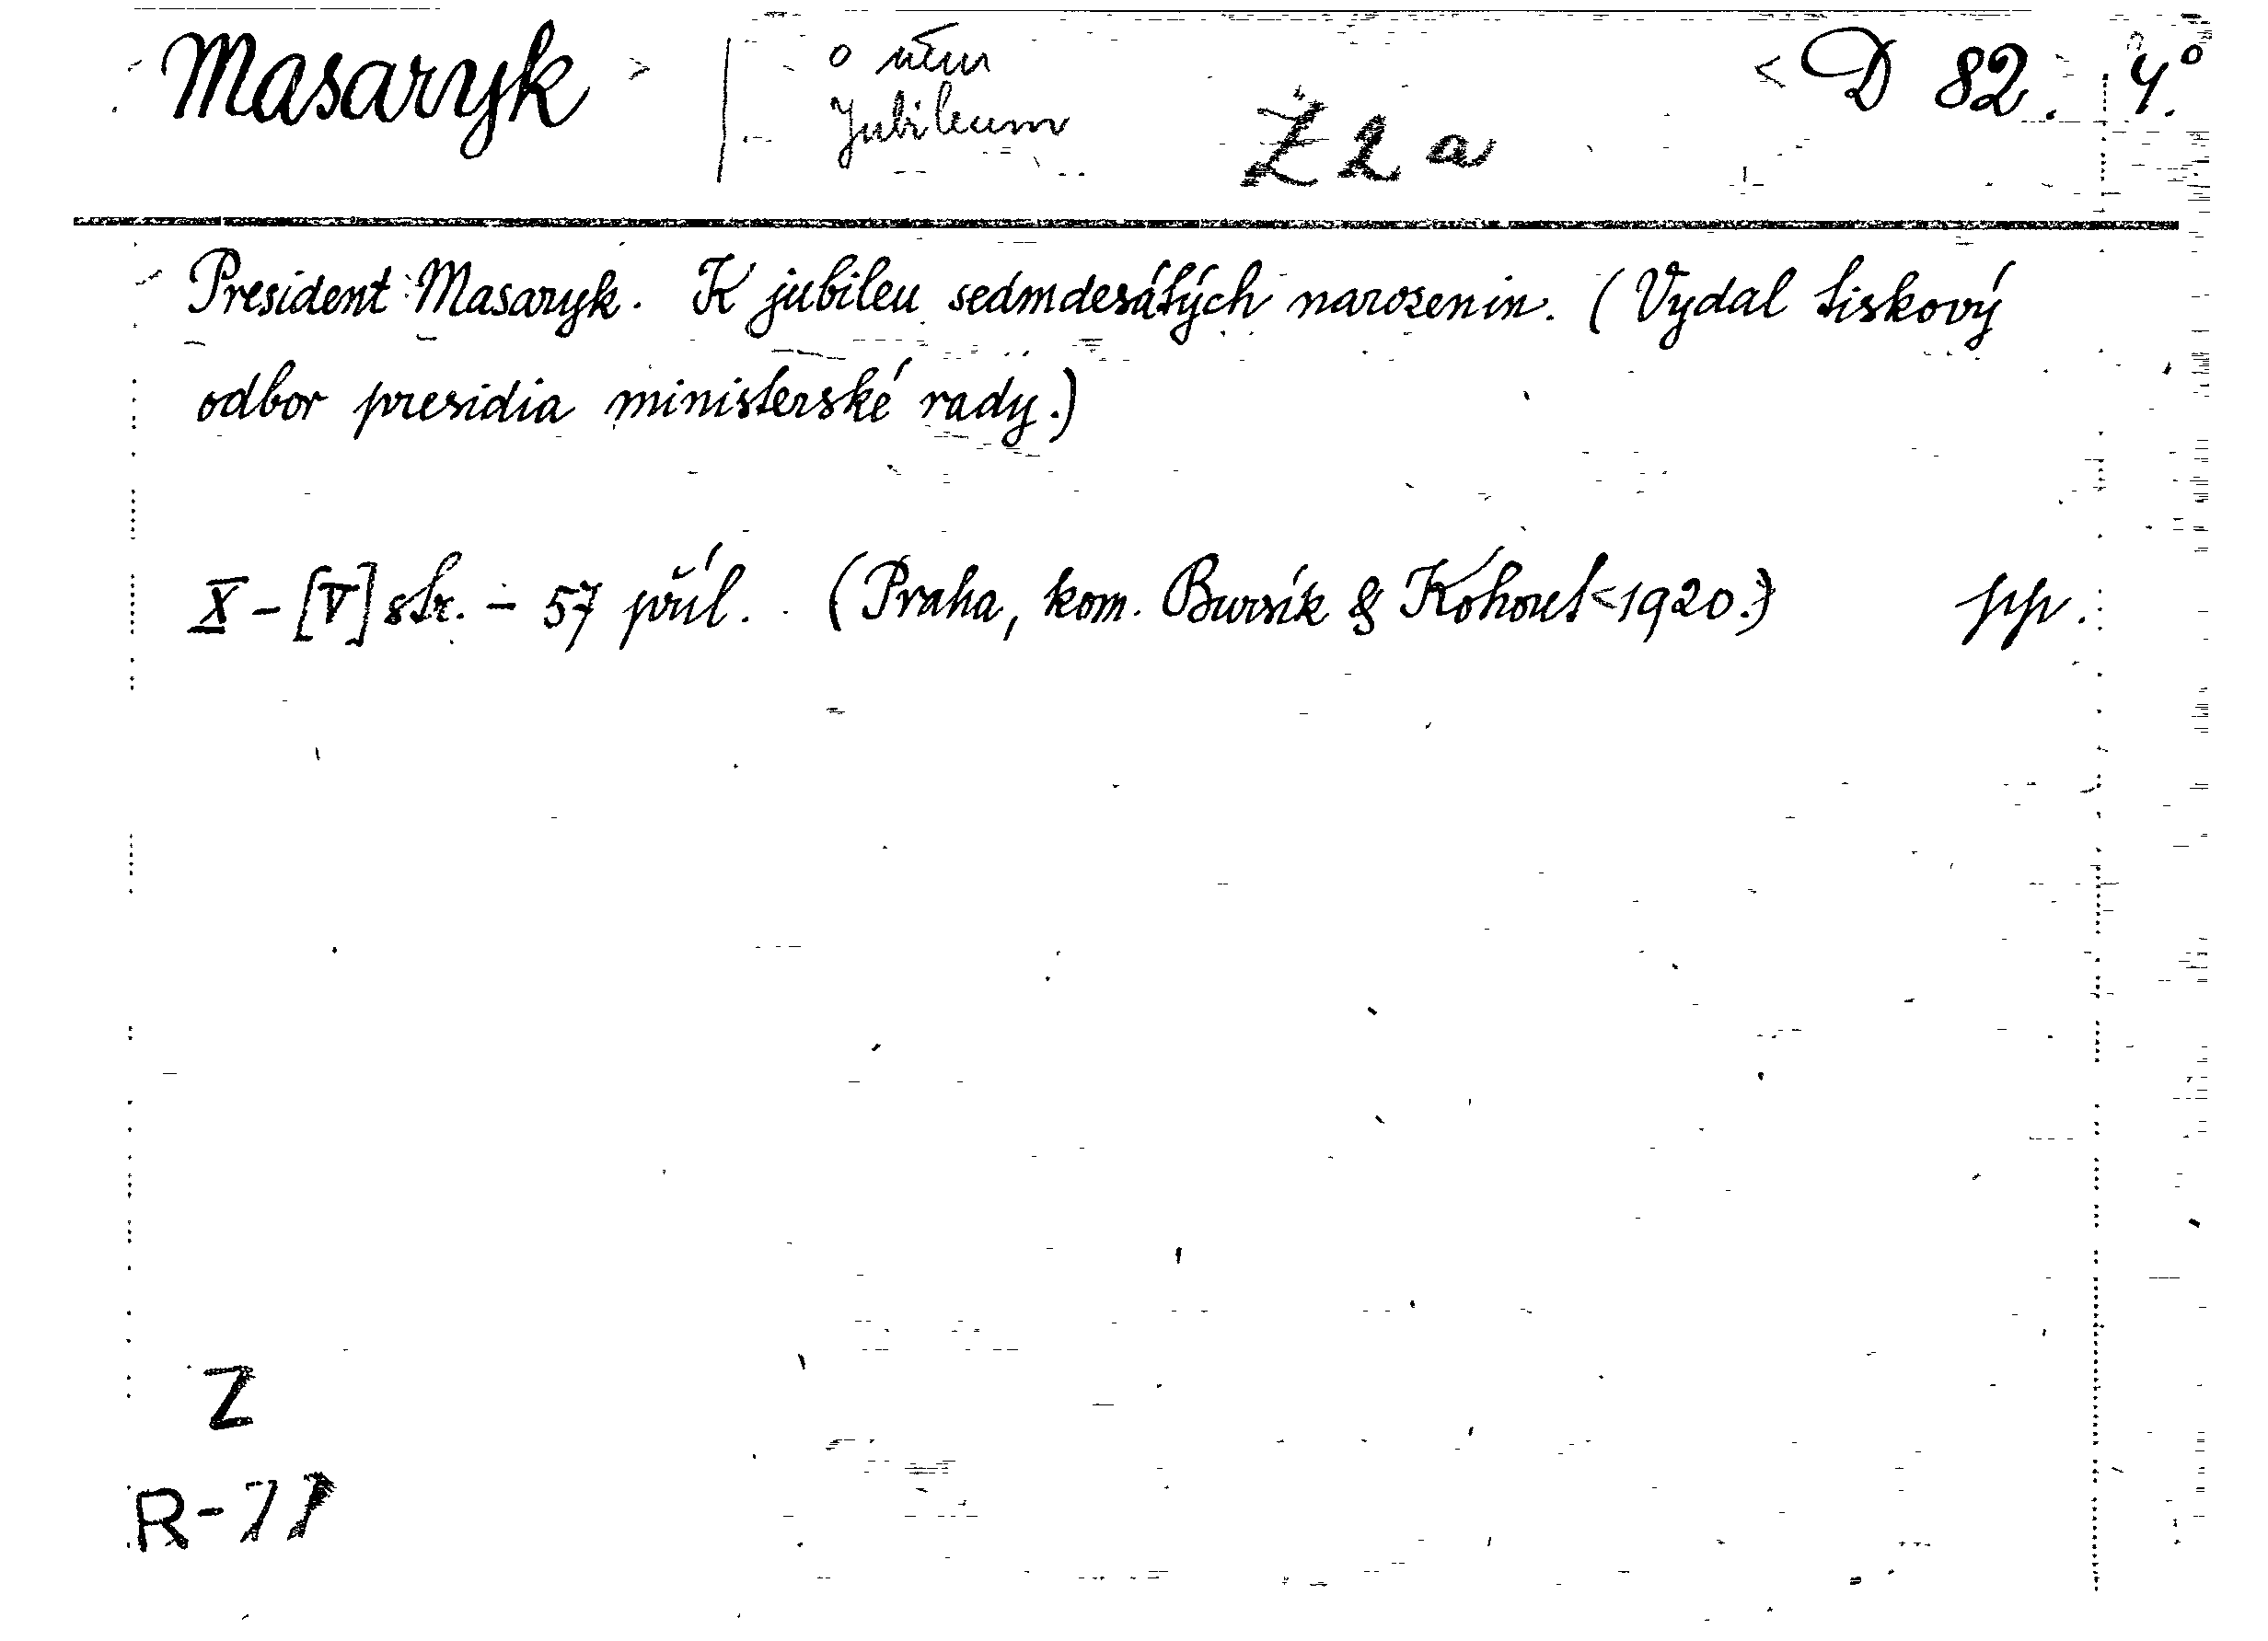 Masaryk | o něm < D 82. 4.°
Jubileum Ž 2 a
President Masaryk. K jubileu sedmdesátých narozenin. (Vydal tiskový
odbor presidia ministerské rady.)
X – [V] str. – 57 příl. (Praha, kom. Bursík & Kohout < 1920.) pp.
Z
R-77